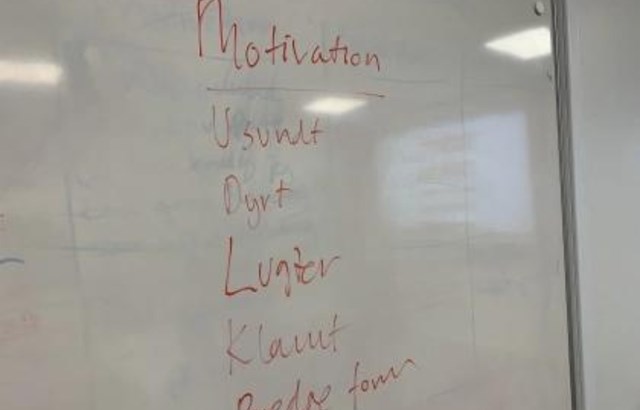 Motivation
Usundt
Dyrt
Lugter
Klamt
Bedre form